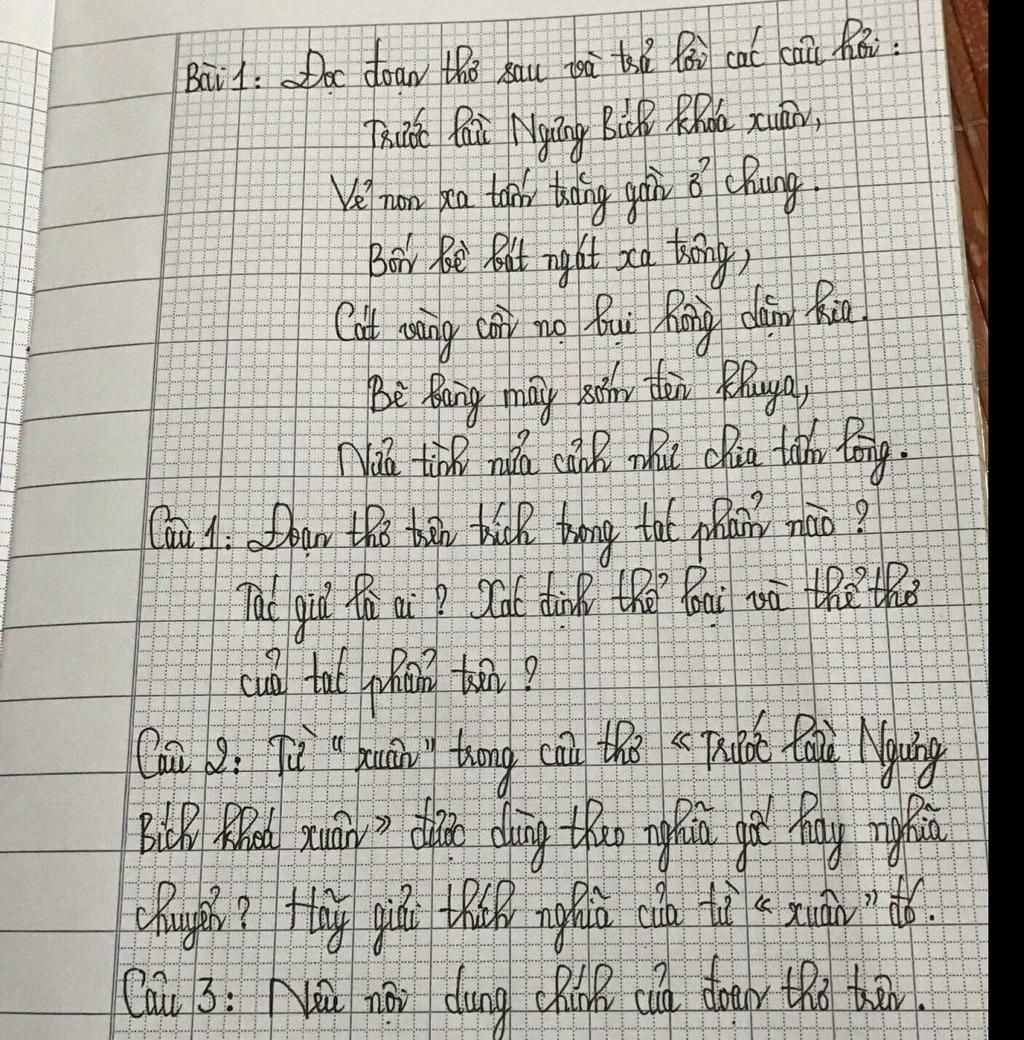 Bài 1: Đọc đoạn thơ sau và trả lời các câu hỏi:
Trước lầu Ngưng Bích khóa xuân,
Vẻ non xa tấm trăng gần ở chung.
Bốn bề bát ngát xa trông,
Cát vàng cồn nọ bụi hồng dặm kia.
Bẽ bàng mây sớm đèn khuya,
Nửa tình nửa cảnh như chia tấm lòng.
Câu 1: Đoạn thơ trên trích trong tác phẩm nào?
Tác giả là ai? Xác định thể loại và thể thơ
của tác phẩm trên?
Câu 2: Từ "xuân" trong câu thơ "Trước lầu Ngưng
Bích khoá xuân" được dùng theo nghĩa gốc hay nghĩa
chuyển? Hãy giải thích nghĩa của từ "xuân" đó.
Câu 3: Nêu nội dung chính của đoạn thơ trên.